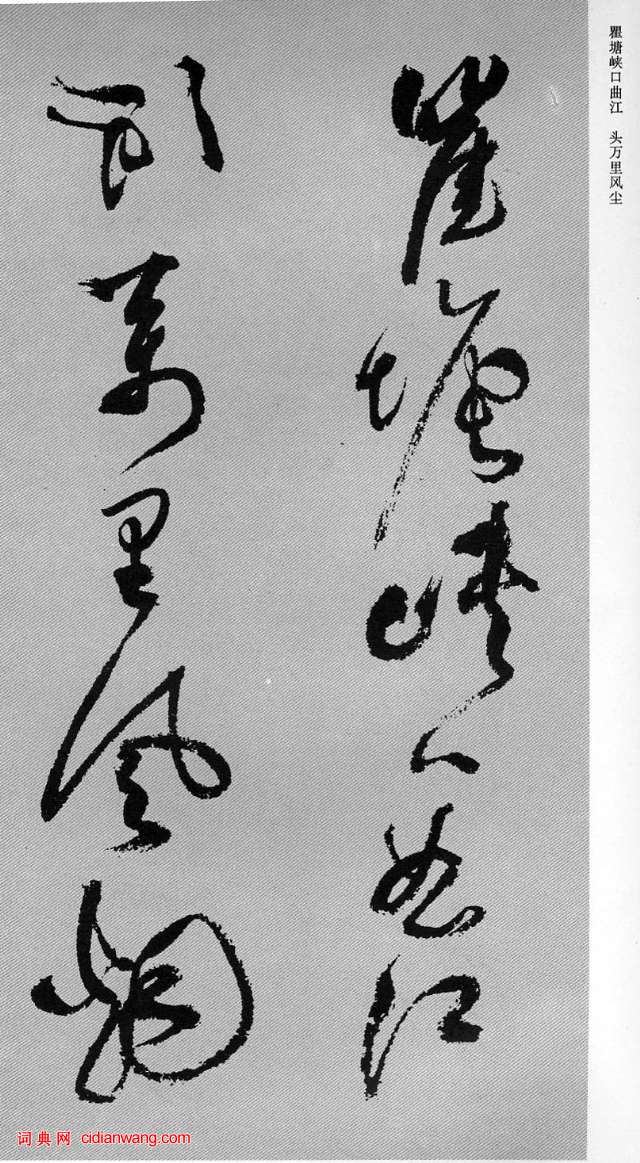 瞿塘峡口曲江　头万里风尘
瞿塘峽口曲江
頭萬里風烟
词典网 cidianwang.com